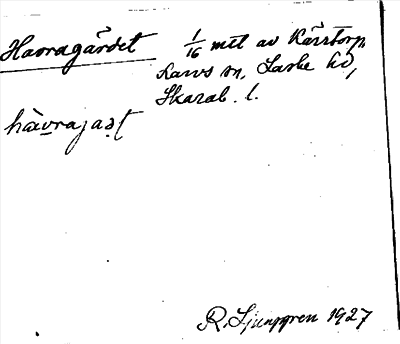 Havragärdet
1/16 mtl av Kärrtorp,
Larvs sn, Laske hd,
Skarab. l.
hàvrajaət
R. Ljunggren 1927